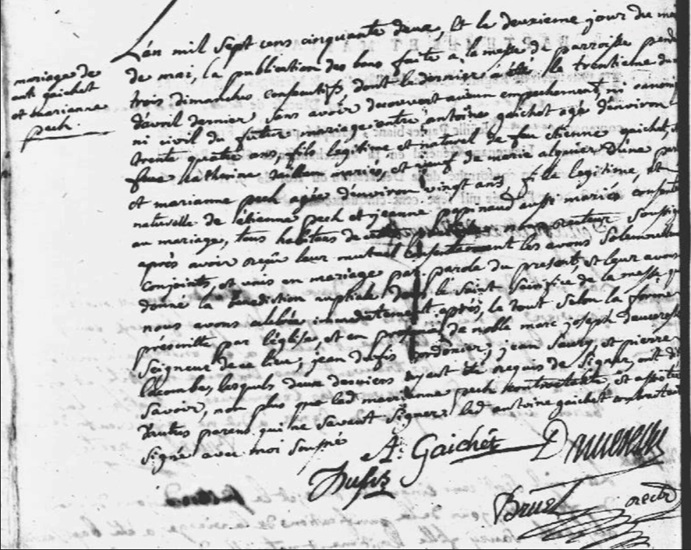 mariage de
ant. gaichet
et marianne
pech.
L'an mil sept cens cinquante deux, et le deuxieme jour du
de mai, la publication des bans faite a la messe de parroisse
trois dimanches consecutifs, dont le dernier a été le trentieme du
d'avril dernier sans avoir decouvert aucun empechement, ni canoni
ni civil du futur mariage entre antoine gaichet agé d'environ
trente quatre ans, fils legitime et naturel de feu etienne gaichet,
feue catherine taillan mariés, et veuf de marie alquier d'une
et marianne pech agée d'environ vingt ans, fille legitime, et
naturelle de etienne pech et jeanne aussi mariés
au mariage, tous habitans de
apres avoir reçeu leur mutuel consentement les avons solemnelle
conjoints, et unis en mariage par parole du present, et leur avons
donné la benediction nuptiale dans le saint sacrifice de la messe
nous avons celebrée immediatement après, le tout selon la forme
prescritte par l'église, et en presence de noble marc joseph
seigneur de ce lieu; jean dufis cordonier; jean saury, et pierre
lacombe, lesquels deux derniers ayant été requis de signer, ont dit
savoir, non plus que lad. marianne pech contractante, et
d'autres parens qui ne savent signer; led. antoine gaichet
signé avec moi soussigné
A: Gaichét
Dufis
Bruel rectr